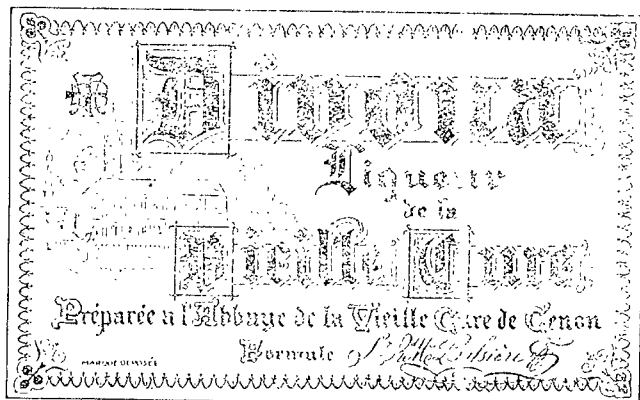 Liqueur
de la
Vieille Cure
Préparée à l'Abbaye de la Vieille Cure de Cenon
MARQUE DÉPOSÉE
Formule